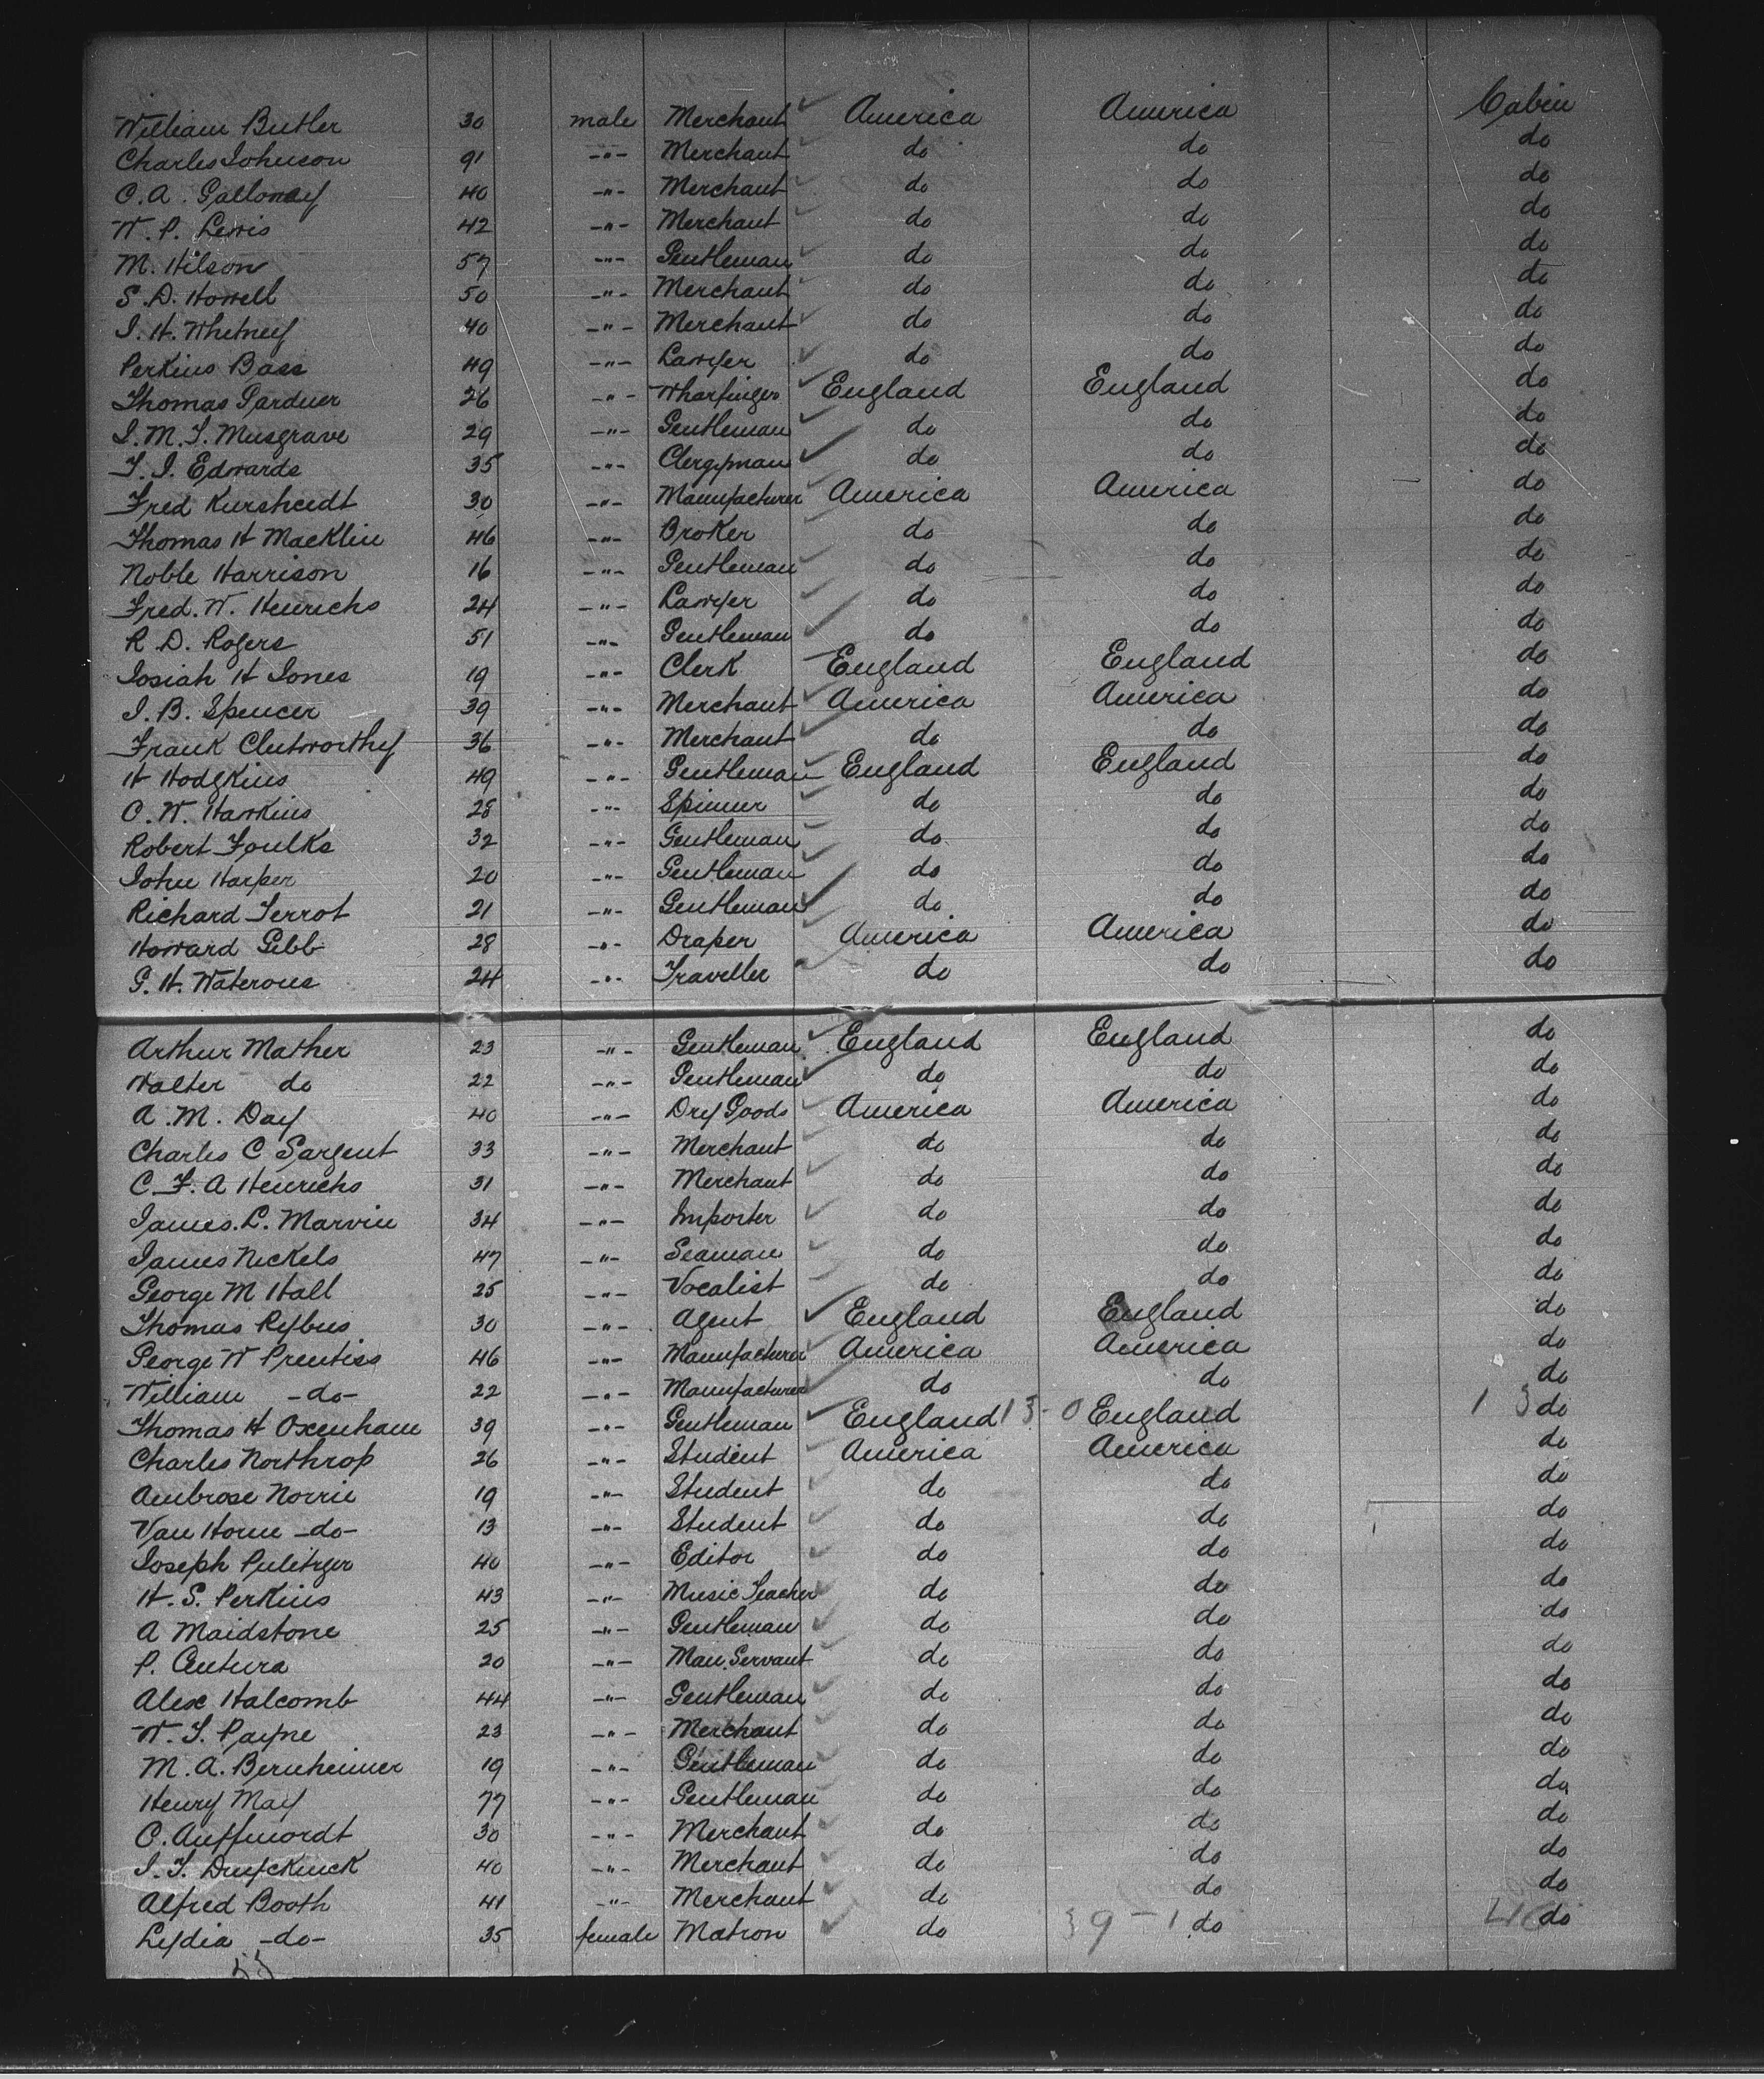 William Butler 30 male Merchant America America Cabin
Charles Johnson 91 -"- Merchant do do do
C. A. Galloway 40 -"- Merchant do do do
W. P. Lewis 42 -"- Merchant do do do
M. Hilson 57 -"- Gentleman do do do
S. D. Howell 50 -"- Merchant do do do
J. H. Whitney 40 -"- Merchant do do do
Perkins Bass 49 -"- Lawyer do do do
Thomas Gardner 26 -"- Wharfinger England England do
J. M. T. Musgrave 29 -"- Gentleman do do do
T. J. Edwards 35 -"- Clergyman do do do
Fred Kursheedt 30 -"- Manufacturer America America do
Thomas H Macklin 46 -"- Broker do do do
Noble Harrison 16 -"- Gentleman do do do
Fred. W. Henrichs 24 -"- Lawyer do do do
R. D. Rogers 51 -"- Gentleman do do do
Josiah H Jones 19 -"- Clerk England England do
J. B. Spencer 39 -"- Merchant America America do
Frank Clutworthy 36 -"- Merchant do do do
H Hodgkins 49 -"- Gentleman England England do
C. W. Hawkins 28 -"- Spinner do do do
Robert Foulks 32 -"- Gentleman do do do
John Harper 20 -"- Gentleman do do do
Richard Terrot 21 -"- Gentleman do do do
Howard Gibb 28 -"- Draper America America do
G. H. Waterous 24 -"- Traveller do do do
Arthur Mather 23 -"- Gentleman England England do
Walter do 22 -"- Gentleman do do do
A. M. Day 40 -"- Dry Goods America America do
Charles C Sargent 33 -"- Merchant do do do
C. F. A Henrichs 31 -"- Merchant do do do
James. L. Marvin 34 -"- Importer do do do
James Nickels 47 -"- Seaman do do do
George M Hall 25 -"- Vocalist do do do
Thomas Rybus 30 -"- Agent England England do
George W Prentiss 46 -"- Manufacturer America America do
William -do- 22 -"- Manufacturer do do do
Thomas H Oxenham 39 -"- Gentleman England 13-0 England 13 do
Charles Northrop 26 -"- Student America America do
Ambrose Norrie 19 -"- Student do do do
Van Horne -do- 13 -"- Student do do do
Joseph Pulitzer 40 -"- Editor do do do
H. S. Perkins 43 -"- Music Teacher do do do
A Maidstone 25 -"- Gentleman do do do
P. Centura 20 -"- Man. Servant do do do
Alex Halcomb 44 -"- Gentleman do do do
W. T. Payne 23 -"- Merchant do do do
M. A. Bernheimer 19 -"- Gentleman do do do
Henry May 77 -"- Gentleman do do do
C. Auffmordt 30 -"- Merchant do do do
J. T. Duyckinck 40 -"- Merchant do do do
Alfred Booth 41 -"- Merchant do do do
Lydia -do- 35 female Matron do 39-1 do do
53